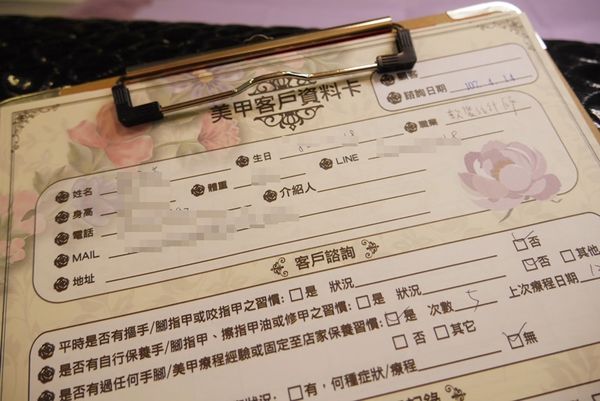 美甲客戶資料卡
顧客
諮詢日期 107.4.14
姓名 生日 職業 軟體設計師
身高 體重 LINE
電話 介紹人
MAIL
地址
客戶諮詢
平時是否有摳手/腳指甲或咬指甲之習慣: 是 狀況 否
是否有自行保養手/腳指甲、擦指甲油或修甲之習慣: 是 狀況 否 其他
是否有過任何手腳/美甲療程經驗或固定至店家保養習慣: 是 次數 5 上次療程日期
否 其它
狀況: 有,何種症狀/療程 無